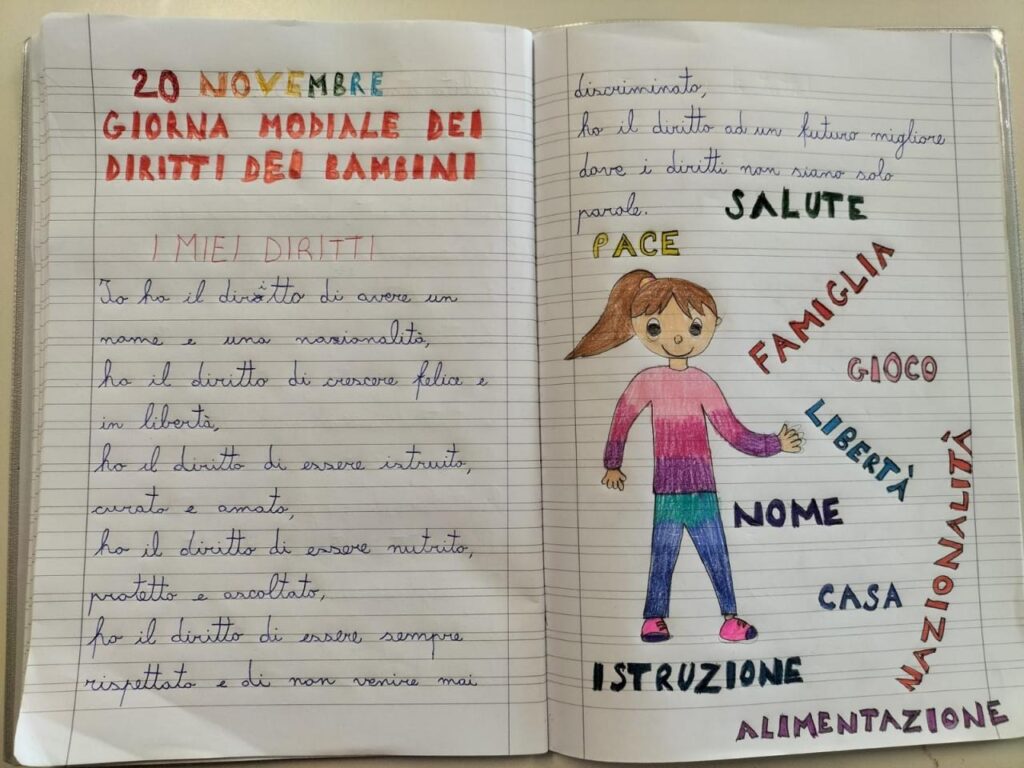 20 NOVEMBRE
GIORNA MODIALE DEI
DIRITTI DEI BAMBINI
I MIEI DIRITTI
Io ho il diritto di avere un
nome e una nazionalità,
ho il diritto di crescere felice e
in libertà,
ho il diritto di essere istruito,
curato e amato,
ho il diritto di essere nutrito,
protetto e ascoltato,
ho il diritto di essere sempre
rispettato e di non venire mai
discriminato,
ho il diritto ad un futuro migliore
dove i diritti non siano solo
parole.
SALUTE
PACE
FAMIGLIA
GIOCO
LIBERTÀ
NOME
NAZIONALITÀ
CASA
ISTRUZIONE
ALIMENTAZIONE